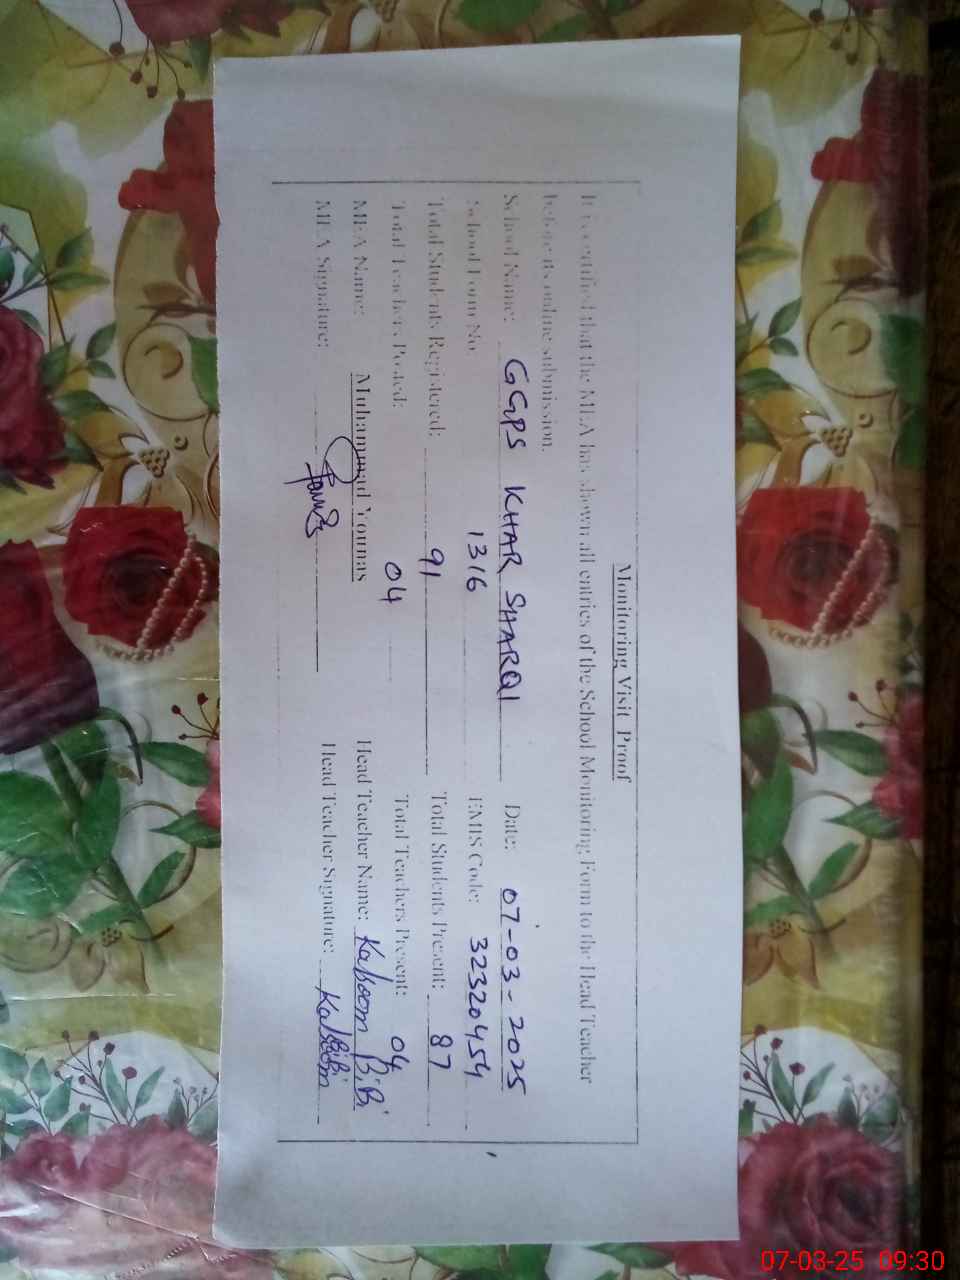 Monitoring Visit Proof
It is certified that the MEA has shown all entries of the School Monitoring Form to the Head Teacher
before its online submission.
School Name: GGPS KHAR SHARQI Date: 07-03-2025
School Form No. 1316 EMIS Code: 32320454
Total Students Registered: 91 Total Students Present: 87
Total Teachers Posted: 04 Total Teachers Present: 04
MEA Name: Muhammad Younas Head Teacher Name: Kalsoom BiBi
MEA Signature: Head Teacher Signature: Kalsoom BiBi
07-03-25 09:30